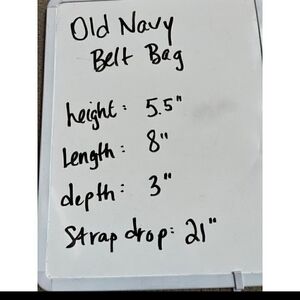 Old Navy
Belt Bag
height: 5.5"
Length: 8"
depth: 3"
Strap drop: 21"